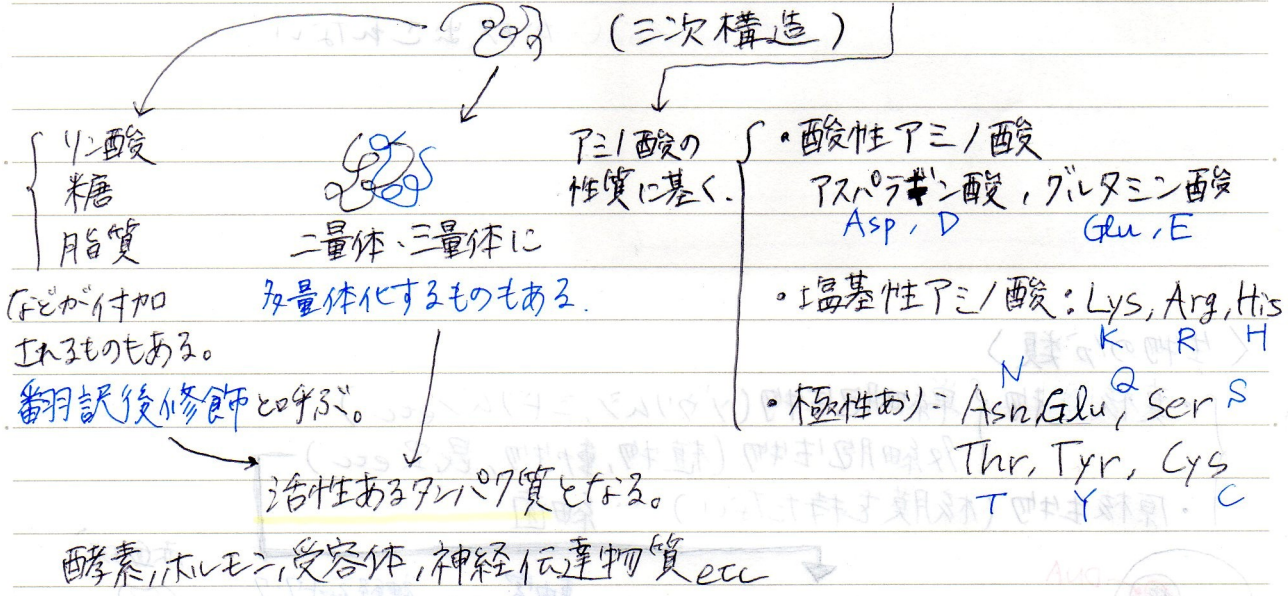 (三次構造)
リン酸
糖
脂質
などが付加
されるものもある。
翻訳後修飾と呼ぶ。
二量体、三量体に
多量体化するものもある.
アミノ酸の
性質に基く.
・酸性アミノ酸
アスパラギン酸, グルタミン酸
Asp, D Glu, E
・塩基性アミノ酸: Lys, Arg, His
K R H
N Q S
・極性あり: Asn, Glu, Ser
Thr, Tyr, Cys
T Y C
活性あるタンパク質となる。
酵素, ホルモン, 受容体, 神経伝達物質 etc